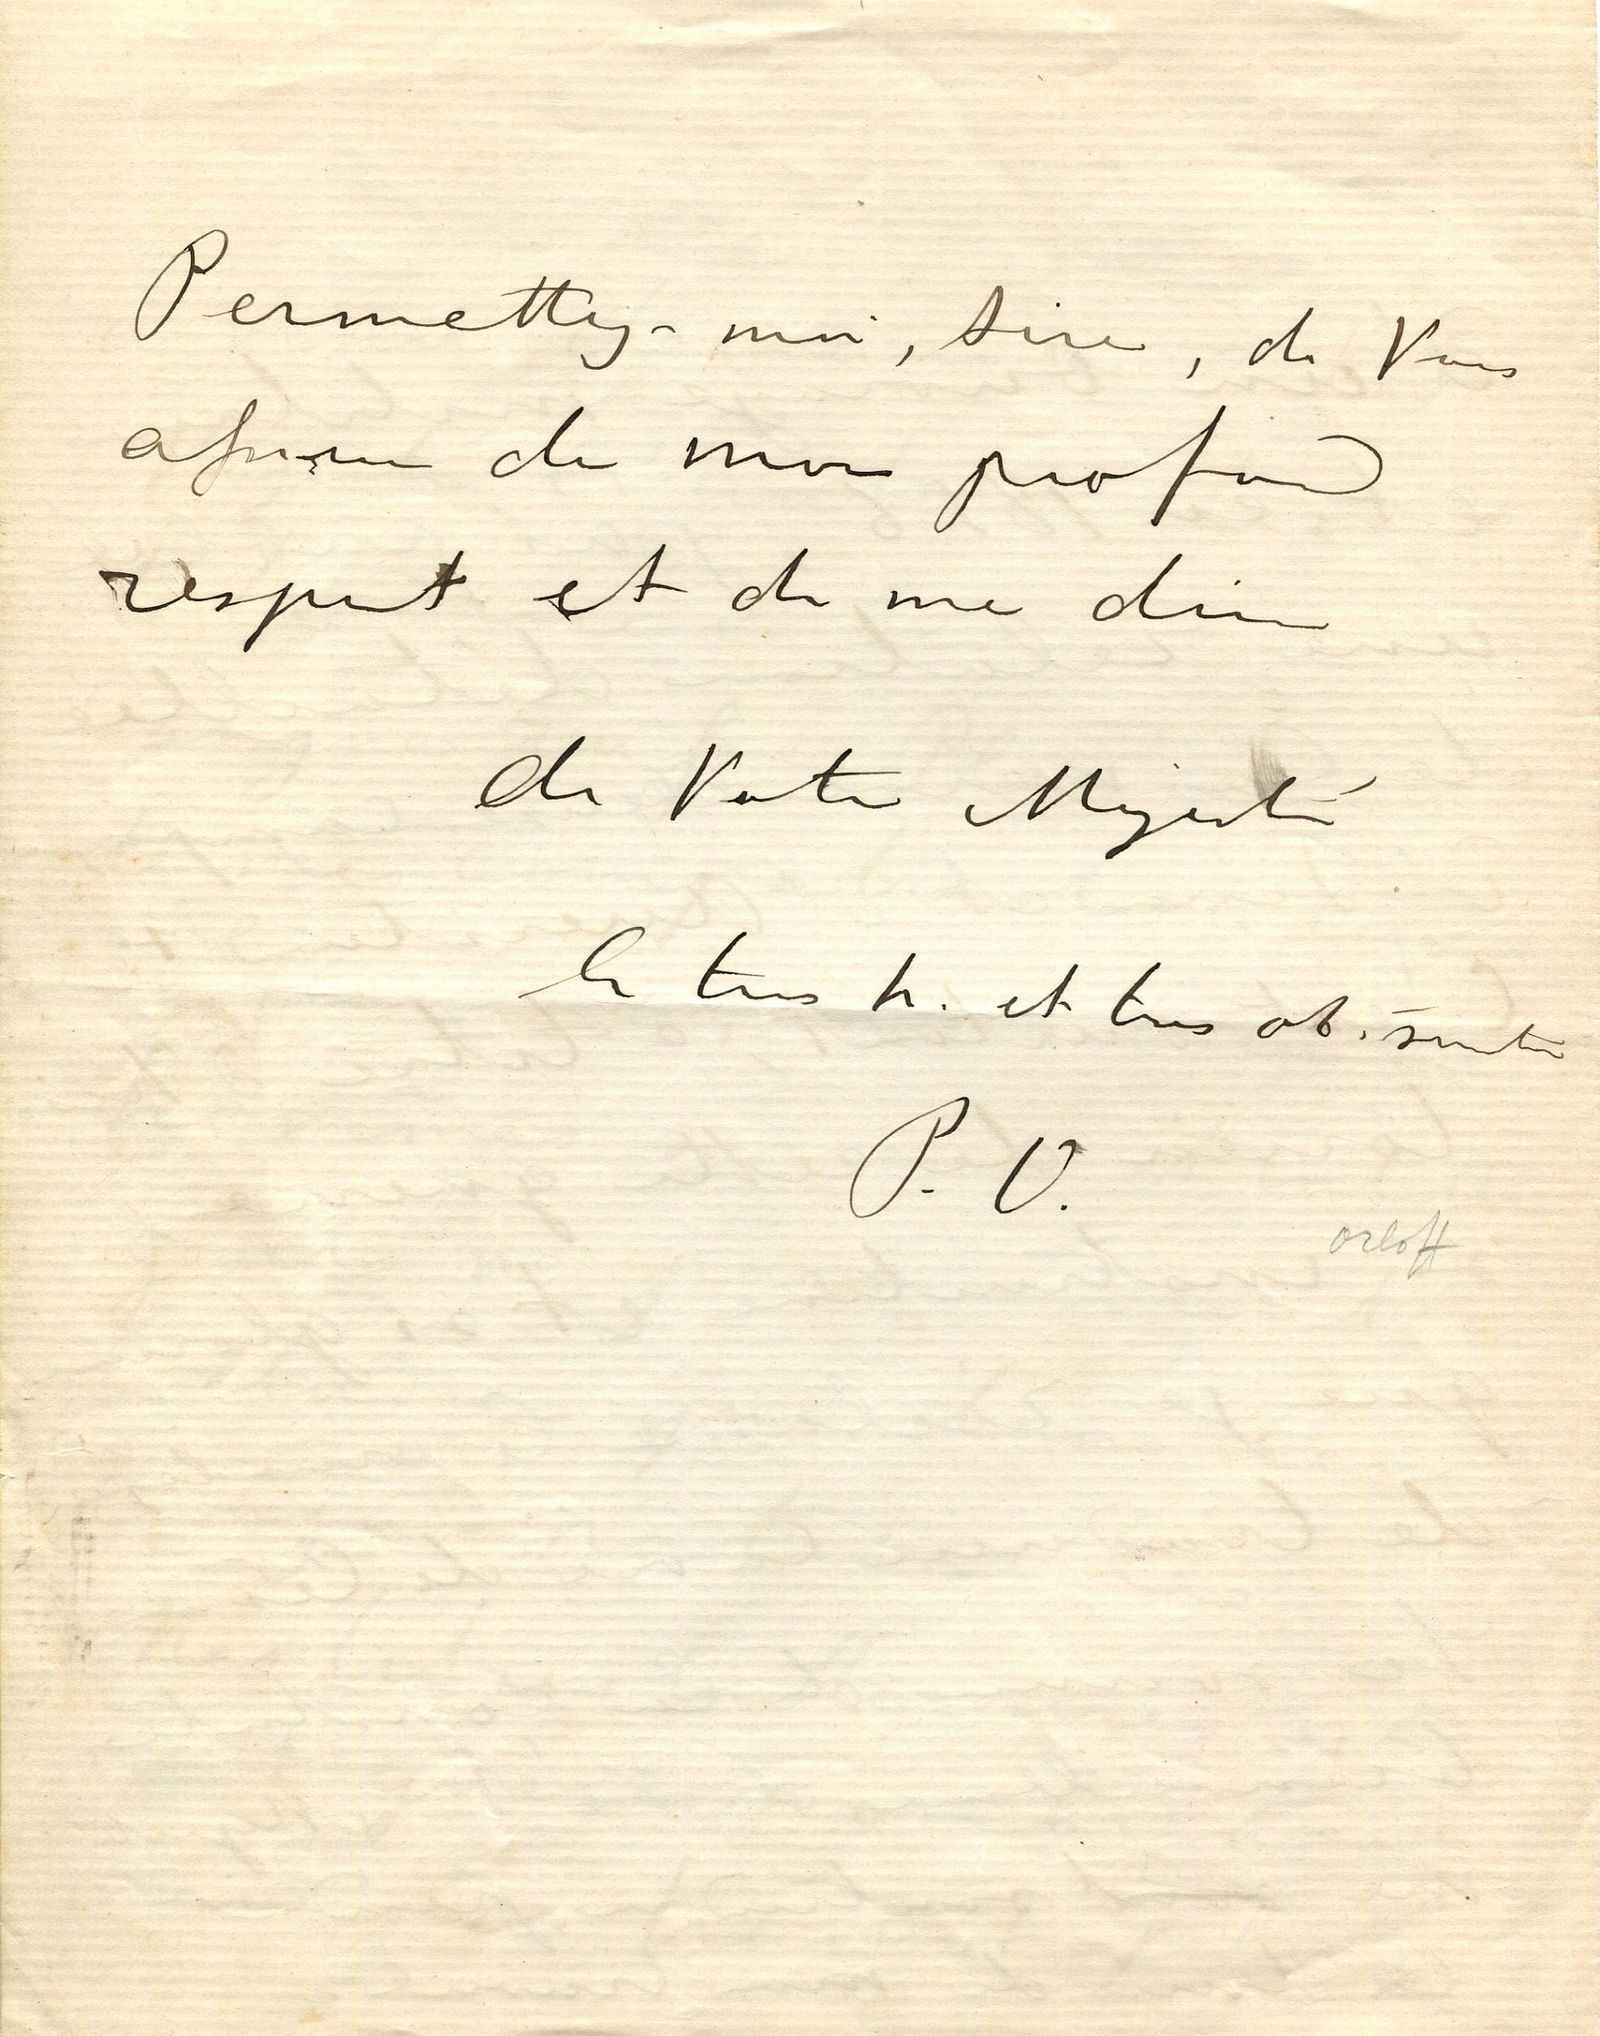 Permettez-moi, Sire, de Vous
assurer de mon profond
respect et de me dire
de Votre Majesté
le très h. et très ob. serviteur
P. V.
orloff